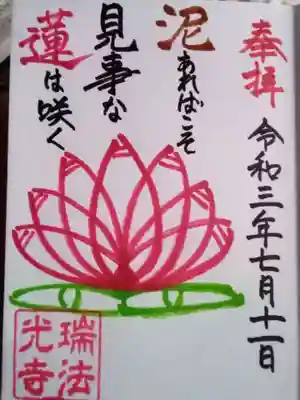 奉拝
令和三年七月十一日
泥あればこそ
見事な
蓮は咲く
瑞法
光寺